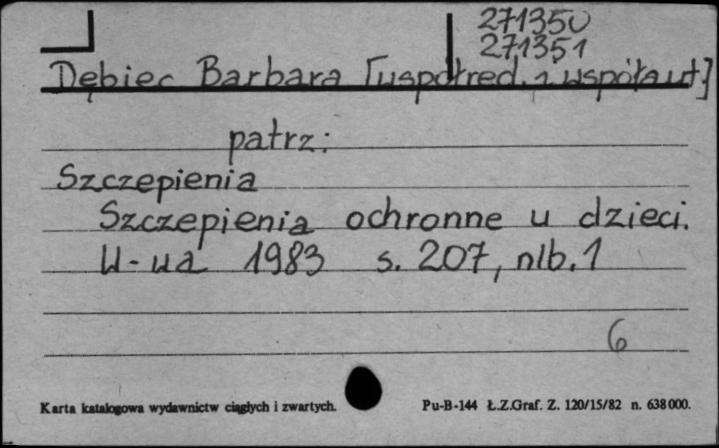 271350
271351
Dębiec Barbara [współred. i współaut.]
patrz:
Szczepienia
Szczepienia ochronne u dzieci.
W-wa 1983 s. 207, nlb. 1
6
Karta katalogowa wydawnictw ciągłych i zwartych. Pu-B-144 Ł.Z.Graf. Z. 120/15/82 n. 638000.